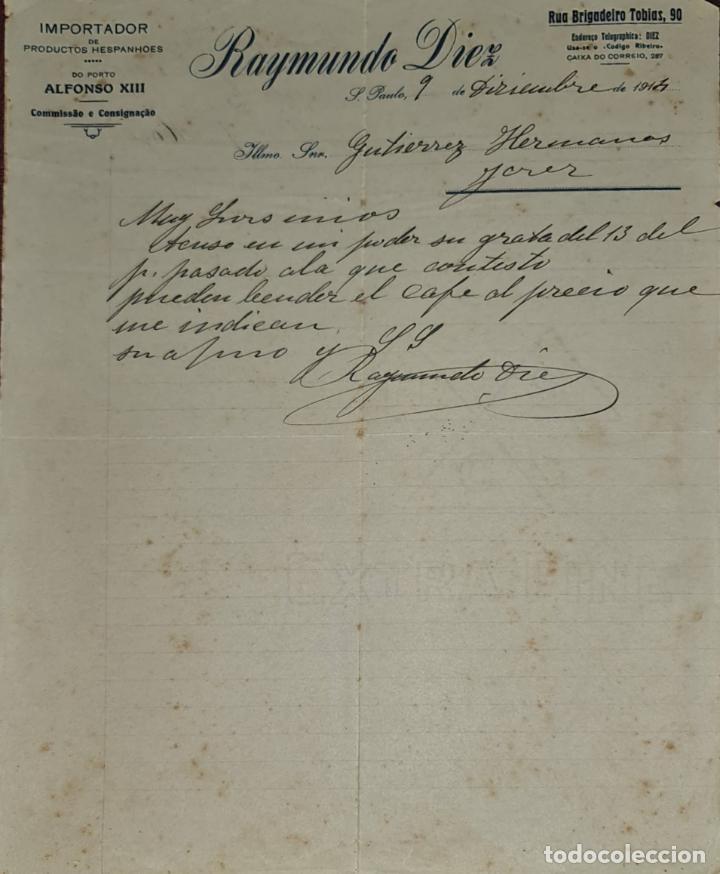 IMPORTADOR
DE
PRODUCTOS HESPANHOES
DO PORTO
ALFONSO XIII
Commissão e Consignação
Raymundo Diez
Rua Brigadeiro Tobias, 90
Endereço Telegraphico: DIEZ
Usa-se o «Codigo Ribeiro»
CAIXA DO CORREIO, 267
S. Paulo, 9 de Diziembre de 1914
Illmo. Snr. Gutierrez Hermanos
Jerez
Muy Snrs mios
Acuso en mi poder su grata del 13 del
p. pasado ala que contesto
pueden bender el cafe al precio que
me indican
su afmo y SS
Raymundo Diez
todocoleccion